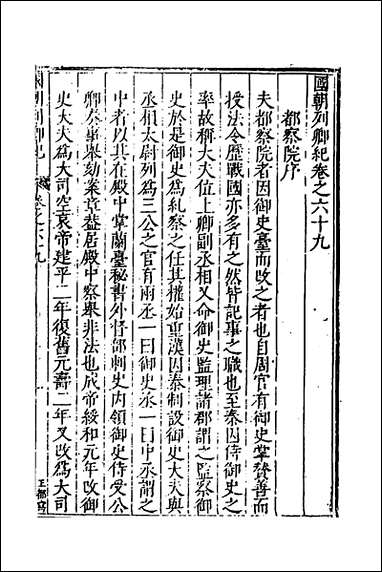 國朝列卿紀卷之六十九
都察院序
夫都察院者因御史臺而改之者也自周官有御史掌賛善而
授法令歷戰國亦多有之然皆記事之職也至秦因侍御史之
率故稱大夫位上卿副丞相又命御史監理諸郡謂之監察御
史於是御史為糺察之任其權始重漢因秦制設御史大夫與
丞相太尉列為三公之官有兩丞一曰御史丞一曰中丞謂之
中者以其在殿中掌蘭臺秘書外督部刺史内領御史侍受公
卿奏事舉劾案章益居殿中察舉非法也成帝綏和元年改御
史大夫為大司空哀帝建平二年復舊元壽二年又改為大司
國朝列卿紀 卷之六十九
王都寫